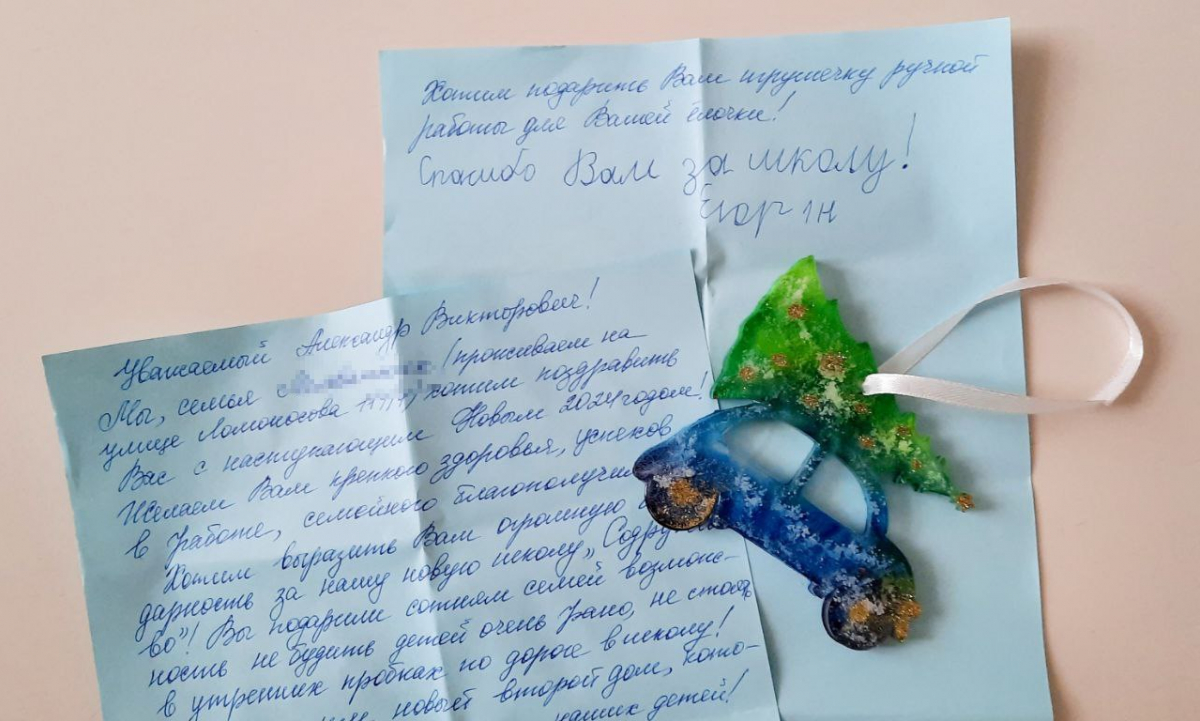 Хотим подарить Вам игрушечку ручной
работы для Вашей ёлочки!
Спасибо Вам за школу!
Уважаемый Александр Викторович!
Мы, семья (проживаем на
улице Ломоносова хотим поздравить
Вас с наступающим Новым 2024 годом!
Желаем Вам крепкого здоровья, успехов
в работе, семейного благополучия
Хотим выразить Вам огромную
дарность за нашу новую школу „Содруж
во"! Вы подарили сотням семей возмож-
ность не будить детей очень рано, не стоять
в утренних пробках по дороге в школу!
новый второй дом, кото-
наших детей!